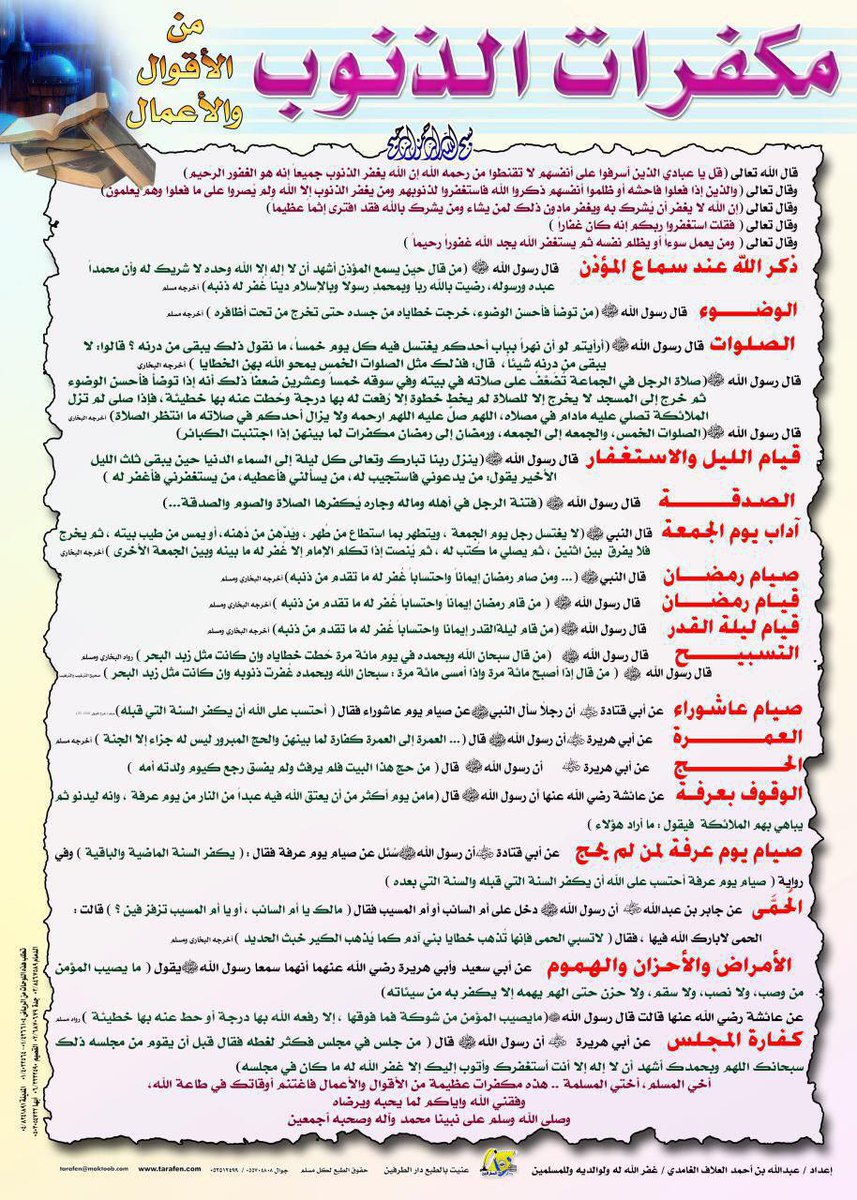 مكفرات الذنوب
من
الأقوال
والأعمال
بسم الله الرحمن الرحيم
قال الله تعالى (قل يا عبادي الذين أسرفوا على أنفسهم لا تقنطوا من رحمه الله إن الله يغفر الذنوب جميعاً إنه هو الغفور الرحيم)
وقال تعالى (والذين إذا فعلوا فاحشه أو ظلموا أنفسهم ذكروا الله فاستغفروا لذنوبهم ومن يغفر الذنوب إلا الله ولم يُصروا على ما فعلوا وهم يعلمون)
وقال تعالى (إن الله لا يغفر أن يُشرك به ويغفر مادون ذلك لمن يشاء ومن يشرك بالله فقد افترى إثما عظيما)
وقال تعالى ( فقلت استغفروا ربكم إنه كان غفاراً )
وقال تعالى ( ومن يعمل سوءا أو يظلم نفسه ثم يستغفر الله يجد الله غفوراً رحيماً )
ذكر الله عند سماع المؤذن قال رسول الله ﷺ (من قال حين يسمع المؤذن أشهد أن لا إله إلا الله وحده لا شريك له وأن محمداً
عبده ورسوله، رضيت بالله ربا وبمحمدٍ رسولا وبالإسلام دينا غفر له ذنبه) أخرجه مسلم
الوضـوء قال رسول الله ﷺ (من توضأ فأحسن الوضوء، خرجت خطاياه من جسده حتى تخرج من تحت أظافره ) أخرجه مسلم
الصلوات قال رسول الله ﷺ (أرأيتم لو أن نهراً بباب أحدكم يغتسل فيه كل يوم خمساً، ما نقول ذلك يبقى من درنه ؟ قالوا: لا
يبقى من درنه شيئا، قال: فذلك مثل الصلوات الخمس يمحو الله بهن الخطايا ) أخرجه البخاري
قال رسول الله ﷺ(صلاة الرجل في الجماعة تُضعَّفُ على صلاته في بيته وفي سوقه خمساً وعشرين ضعفا ذلك أنه إذا توضأ فأحسن الوضوء
ثم خرج إلى المسجد لا يخرج إلا للصلاة لم يخط خطوة إلا رُفعت له بها درجة وحُطت عنه بها خطيئة، فإذا صلى لم تزل
الملائكة تصلي عليه مادام في مصلاه، اللهم صلّ عليه اللهم ارحمه ولا يزال أحدكم في صلاته ما انتظر الصلاة) أخرجه البخاري
قال رسول الله ﷺ(الصلوات الخمس، والجمعه إلى الجمعه، ورمضان إلى رمضان مكفرات لما بينهن إذا اجتنبت الكبائر)
قيام الليل والاستغفار قال رسول الله ﷺ (ينزل ربنا تبارك وتعالى كل ليلة إلى السماء الدنيا حين يبقى ثلث الليل
الأخير يقول: من يدعوني فاستجيب له، من يسألني فأعطيه، من يستغفرني فأغفر له )
الصدقـة قال رسول الله ﷺ (فتنة الرجل في أهله وماله وجاره يُكفرها الصلاة والصوم والصدقة...)
آداب يوم الجمعة قال النبي ﷺ(لا يغتسل رجل يوم الجمعة ، ويتطهر بما استطاع من طُهر ، ويدَّهن من دُهنه، أو يمس من طيب بيته ، ثم يخرج
فلا يفرق بين اثنين ، ثم يصلي ما كُتب له ، ثم يُنصت إذا تكلم الإمام إلا غفر له ما بينه وبين الجمعة الأخرى ) أخرجه البخاري
صيام رمضـان قال النبي ﷺ (... ومن صام رمضان إيماناً واحتساباً غُفر له ما تقدم من ذنبه) أخرجه البخاري ومسلم
قيام رمضـان قال رسول الله ﷺ ( من قام رمضان إيماناً واحتساباً غُفر له ما تقدم من ذنبه ) أخرجه البخاري ومسلم
قيام ليلة القدر قال رسول الله ﷺ (من قام ليلةالقدر إيمانا واحتساباً غُفر له ما تقدم من ذنبه) أخرجه البخاري ومسلم
التسبيـح قال رسول الله ﷺ (من قال سبحان الله وبحمده في يوم مائة مرة حُطت خطاياه وان كانت مثل زبد البحر ) رواه البخاري ومسلم
قال رسول الله ﷺ ( من قال إذا أصبح مائة مرة وإذا أمسى مائة مرة : سبحان الله وبحمده غُفرت ذنوبه وإن كانت مثل زبد البحر )
صيام عاشوراء عن أبي قتادة رضي الله عنه أن رجلاً سأل النبي ﷺ عن صيام يوم عاشوراء فقال ( أحتسب على الله أن يكفر السنة التي قبله)
العمـرة عن أبي هريرة رضي الله عنه أن رسول الله ﷺ قال (... العمرة إلى العمرة كفارة لما بينهن والحج المبرور ليس له جزاء إلا الجنة ) أخرجه مسلم
الحـج عن أبي هريرة رضي الله عنه أن رسول الله ﷺ قال ( من حج هذا البيت فلم يرفث ولم يفسق رجع كيوم ولدته أمه )
الوقوف بعرفة عن عائشة رضي الله عنها أن رسول الله ﷺ قال (مامن يوم أكثر من أن يعتق الله فيه عبداً من النار من يوم عرفة ، وانه ليدنو ثم
يباهي بهم الملائكة فيقول : ما أراد هؤلاء )
صيام يوم عرفة لمن لم يحج عن أبي قتادة رضي الله عنه أن رسول الله ﷺ سُئل عن صيام يوم عرفة فقال : ( يكفر السنة الماضية والباقية ) وفي
رواية ( صيام يوم عرفة أحتسب على الله أن يكفر السنة التي قبله والسنة التي بعده )
الحُمَّى عن جابر بن عبدالله رضي الله عنه أن رسول الله ﷺ دخل على أم السائب أو أم المسيب فقال ( مالك يا أم السائب ، أو يا أم المسيب تزفزفين ؟ ) قالت :
الحمى لابارك الله فيها ، فقال ( لاتسبي الحمى فإنها تُذهب خطايا بني آدم كما يُذهب الكير خبث الحديد ) أخرجه البخاري ومسلم
الأمراض والأحزان والهموم عن أبي سعيد وأبي هريرة رضي الله عنهما أنهما سمعا رسول الله ﷺ يقول ( ما يصيب المؤمن
من وصب، ولا نصب، ولا سقم، ولا حزن حتى الهم يهمه إلا يكفر به من سيئاته)
عن عائشة رضي الله عنها قالت قال رسول الله ﷺ(مايصيب المؤمن من شوكة فما فوقها ، إلا رفعه الله بها درجة أو حط عنه بها خطيئة ) رواه مسلم
كفارة المجلس عن أبي هريرة رضي الله عنه أن رسول الله ﷺ قال ( من جلس في مجلس فكثر لغطه فقال قبل أن يقوم من مجلسه ذلك
سبحانك اللهم وبحمدك أشهد أن لا إله إلا أنت أستغفرك وأتوب إليك إلا غفر الله له ما كان في مجلسه)
أخي المسلم، أختي المسلمة .. هذه مكفرات عظيمة من الأقوال والأعمال فاغتنم أوقاتك في طاعة الله،
وفقني الله وإياكم لما يحبه ويرضاه
وصلى الله وسلم على نبينا محمد وآله وصحبه أجمعين
إعداد / عبدالله بن أحمد العلاف الغامدي / غفر الله له ولوالديه وللمسلمين
عنيت بالطبع دار الطرفين
حقوق الطبع لكل مسلم
www.tarafen.com
tarafen@maktoob.com